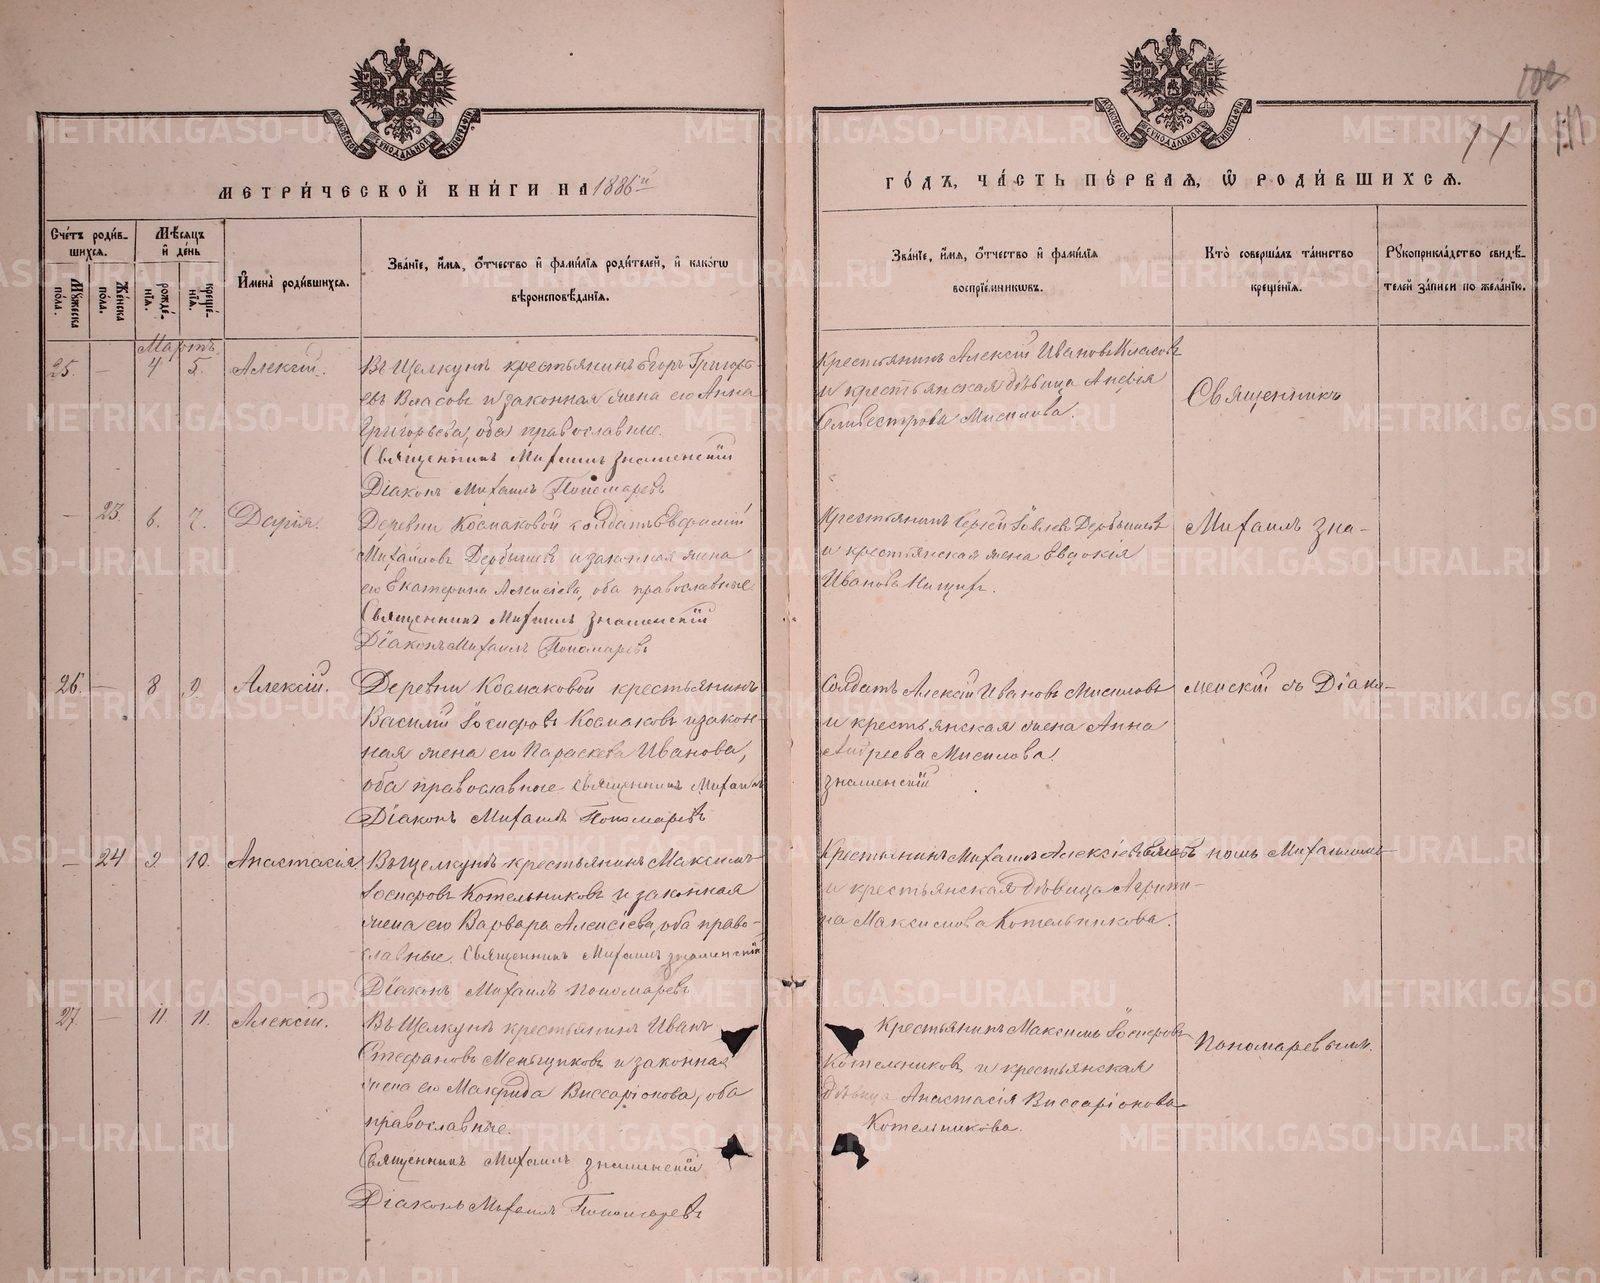 МЕТРИЧЕСКОЙ КНИГИ НА 1886й
ГОДЪ, ЧАСТЬ ПЕРВАЯ, Ѿ РОДИВШИХСЯ.
Счетъ родившихся.
Мужеска пола.
Женска пола.
Мѣсяцъ и день
рожденія.
крещенія.
Имена родившихся.
Званіе, имя, отчество и фамилія родителей, и какого
вѣроисповѣданія.
Званіе, имя, отчество и фамилія
воспріемниковъ.
Кто совершалъ таинство
крещенія.
Рукоприкладство свидѣ-
телей записи по желанію.
Мартъ
25. — 4 5. Алексій.
Въ Щелкунѣ крестьянинъ Егоръ Григорь-
евъ Власовъ и законная жена его Анна
Григорьева, оба православные.
Священникъ Михаилъ Знаменскій
Діаконъ Михаилъ Пономаревъ
Крестьянинъ Алексій Ивановъ Власовъ
и крестьянская дѣвица Анфія
Селивестрова
Священникъ
— 23. 6. 7. Дарія.
Деревни Космаковой солдатъ Евфимій
Михайловъ Дербышевъ и законная жена
его Екатерина Алексіева, оба православные
Священникъ Михаилъ Знаменскій
Діаконъ Михаилъ Пономаревъ
Крестьянинъ Сергій Дербышевъ
и крестьянская жена Евдокія
Иванова
Михаилъ Зна-
26. — 8 9. Алексій.
Деревни Космаковой крестьянинъ
Василій Іосифовъ Космаковъ и закон-
ная жена его Параскева Иванова,
оба православные Священникъ Михаилъ
Діаконъ Михаилъ Пономаревъ
Солдатъ Алексій Ивановъ
и крестьянская жена Анна
Андреева
Знаменскій
менскій съ Діако-
— 24 9 10. Анастасія.
Въ Щелкунѣ крестьянинъ Максимъ
Іосифовъ Котельниковъ и законная
жена его Варвара Алексіева, оба право-
славные. Священникъ Михаилъ Знаменскій
Діаконъ Михаилъ Пономаревъ
Крестьянинъ Михаилъ Алексіевъ
и крестьянская дѣвица Агрипи-
на Максимова Котельникова.
номъ Михаиломъ
27. — 11. 11. Алексій.
Въ Щелкунѣ крестьянинъ Иванъ
Стефановъ Меньщиковъ и законная
жена его Макрида Виссаріонова, оба
православные.
Священникъ Михаилъ Знаменскій
Діаконъ Михаилъ Пономаревъ
Крестьянинъ Максимъ Іосифовъ
Котельниковъ и крестьянская
дѣвица Анастасія Виссаріонова
Котельникова.
Пономаревымъ.
METRIKI.GASO-URAL.RU